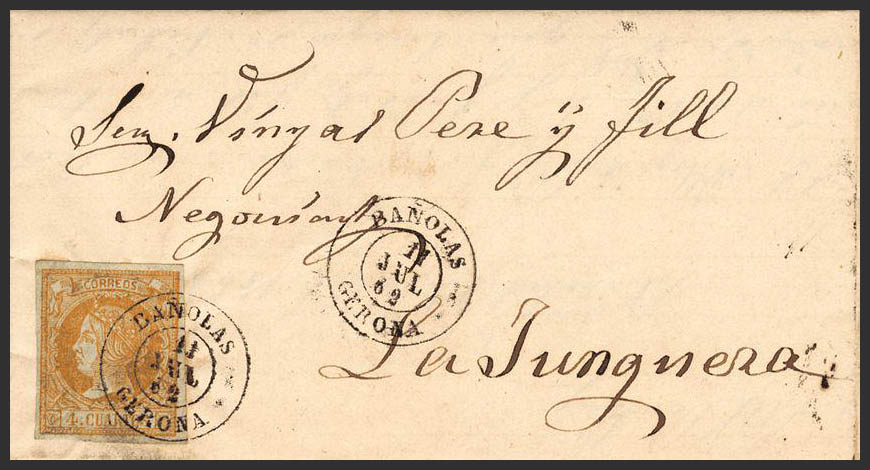 Señ. Vinyal Pere ÿ Jill
Negociant
La Junquera
BAÑOLAS
11
JUL
62
GERONA
CORREOS
4 CU
BAÑOLAS
11
JUL
62
GERONA